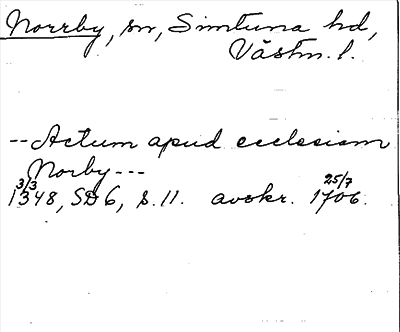 Norrby, sn, Simtuna hd,
Västm. l.
-- Actum apud ecclesiam
Norby ---
3/3 1348, SD 6, s. 11. avskr. 25/7 1706.